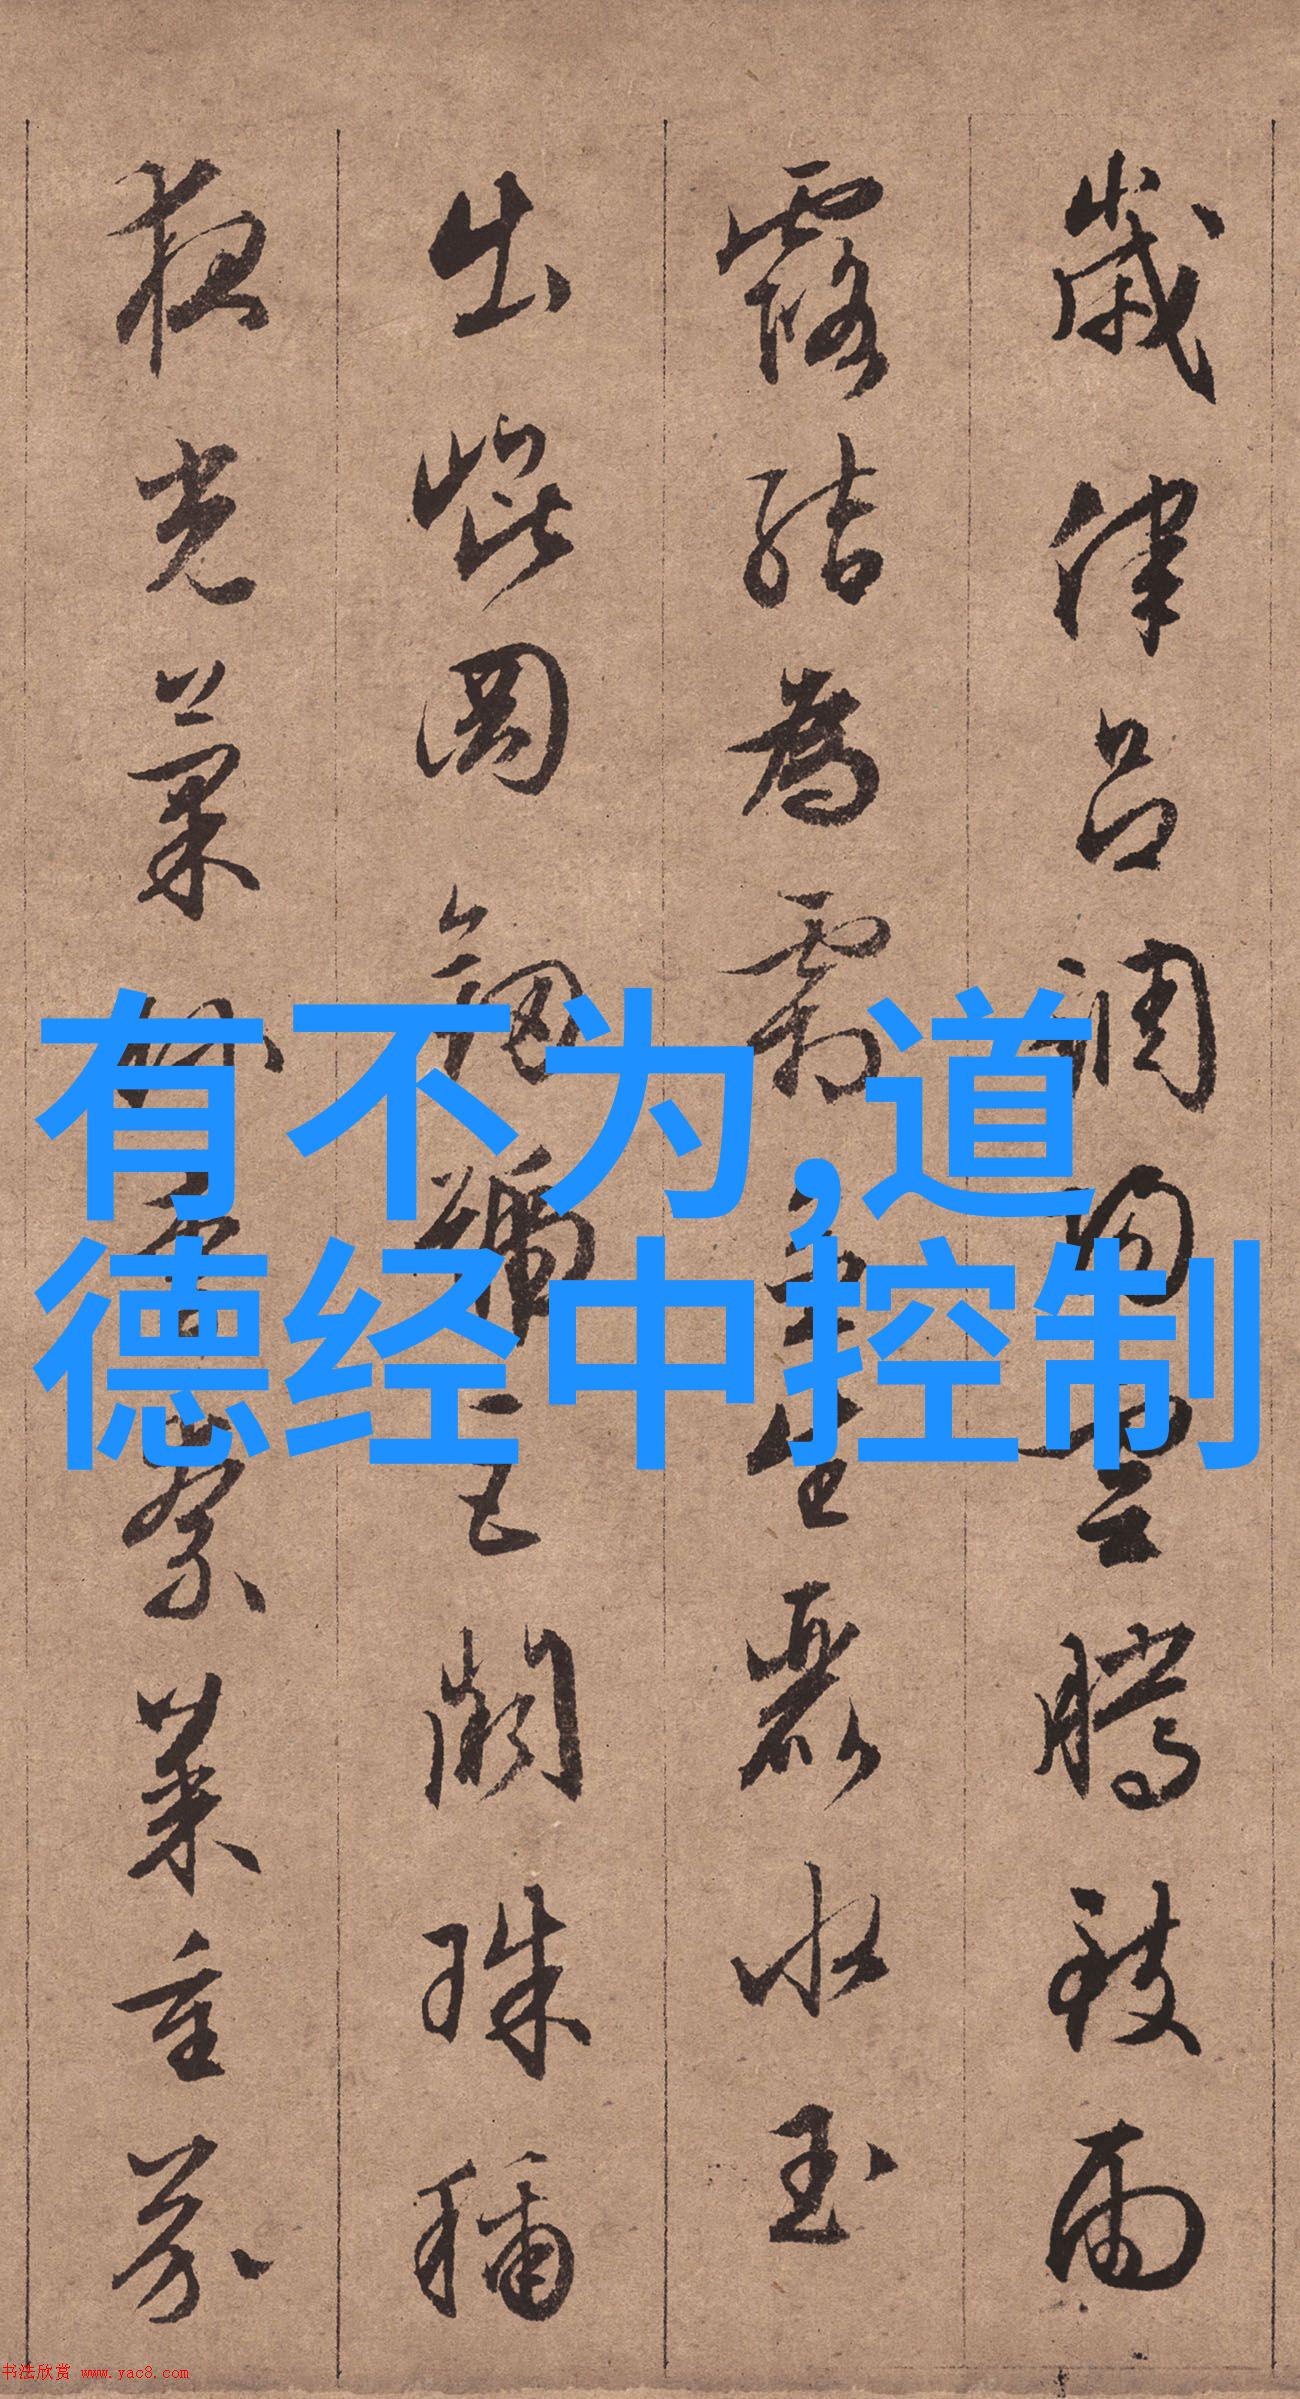 歲律呂調陽雲騰致雨
露結為霜金生麗水玉
出崑岡劍號巨闕珠稱
夜光菓珍李柰菜重芥
有不为,道
德经中控制
书法欣赏 www.yac8.com